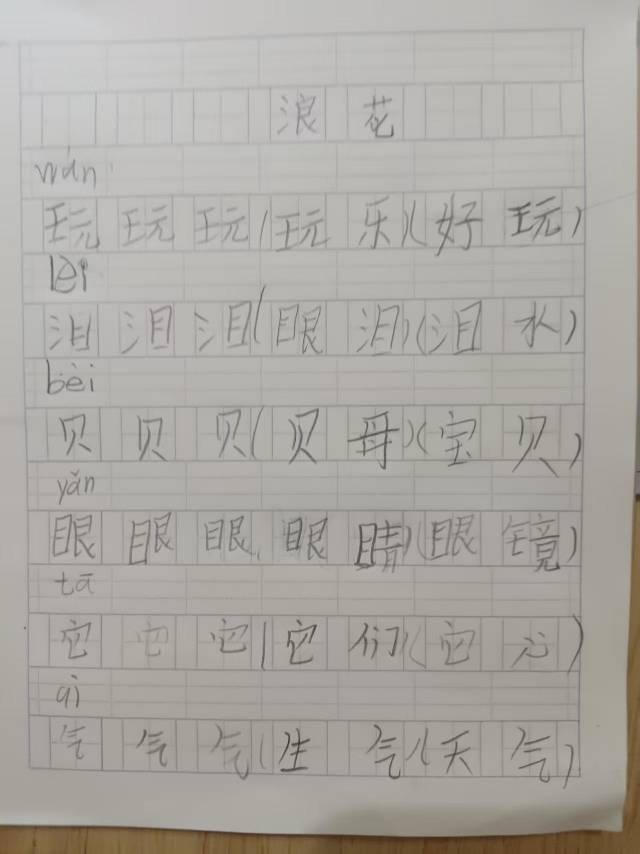 浪花
wán
玩 玩 玩(玩 乐)(好 玩)
lèi
泪 泪 泪(眼 泪)(泪 水)
bèi
贝 贝 贝(贝 母)(宝 贝)
yǎn
眼 眼 眼(眼 睛)(眼 镜)
tā
它 它 它(它 们)(它 心)
qì
气 气 气(生 气)(天 气)